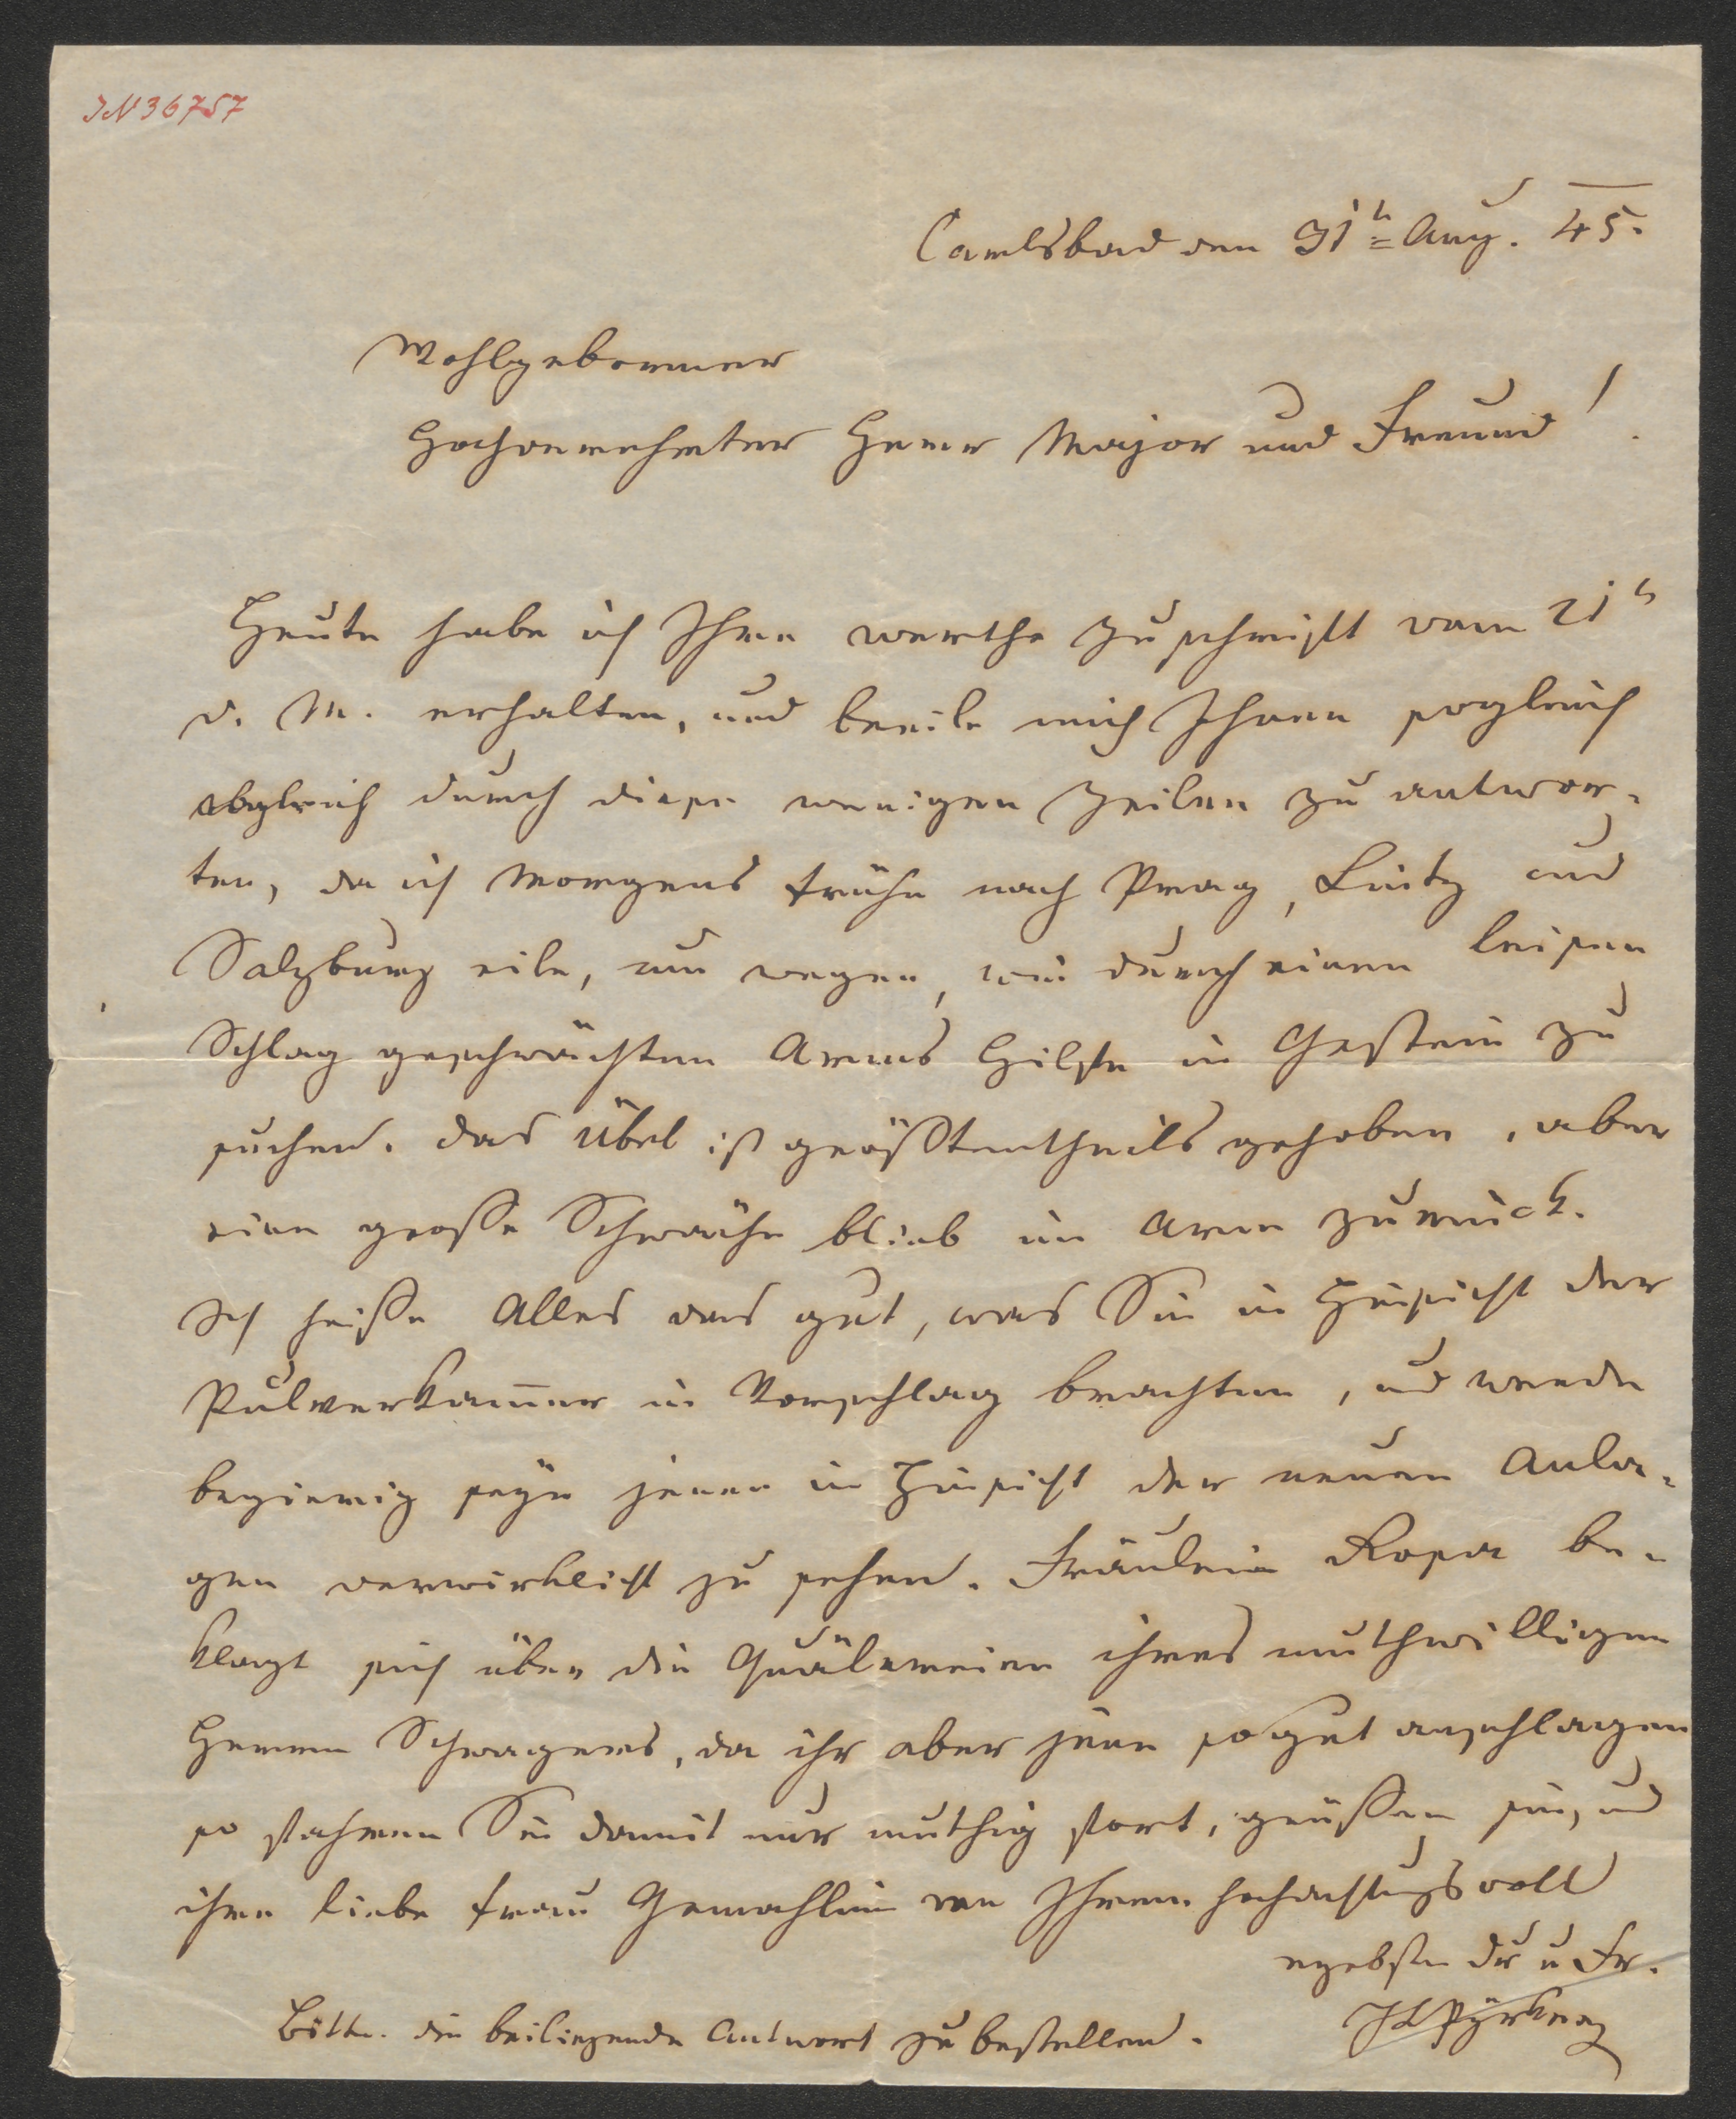 IN 36757
Carlsbad den 31t = Aug. 45.
Wohlgeborner
Hochverehrter Herr Major und Freund!
Heute habe ich Ihre werthe Zuschrift vom 21t
d. M. erhalten, und beeile mich Ihnen sogleich
obgleich durch diese wenigen Zeilen zu antwor-
ten, da ich Morgens frühe nach Prag, Lintz und
Salzburg eile, um wegen, wie durch einen leisen
Schlag geschwächten Armes Hilfe in Gastein zu
suchen. Das Übel ist größtentheils gehoben, aber
eine große Schwäche blieb im Arme zurück.
Ich heiße Alles das gut, was Sie in Hinsicht der
Pulverkam̅er in Vorschlag brachten, und werde
begierig seyn jenen in Hinsicht der neuen Anla-
gen verwirklicht zu sehen. Fräulein Rosa be-
klagt sich über die Quälereien ihres muthwilligen
Herrn Schwagers, da ihr aber jene so gut anschlagen
so fahren Sie damit nur muthig fort, grüßen sie, und
ihre liebe Frau Gemahlin von Ihrem hochachtungsvoll
ergebsten Dr u Fr.
JLPyrker
Bitte die beiliegende Antwort zu bestellen.